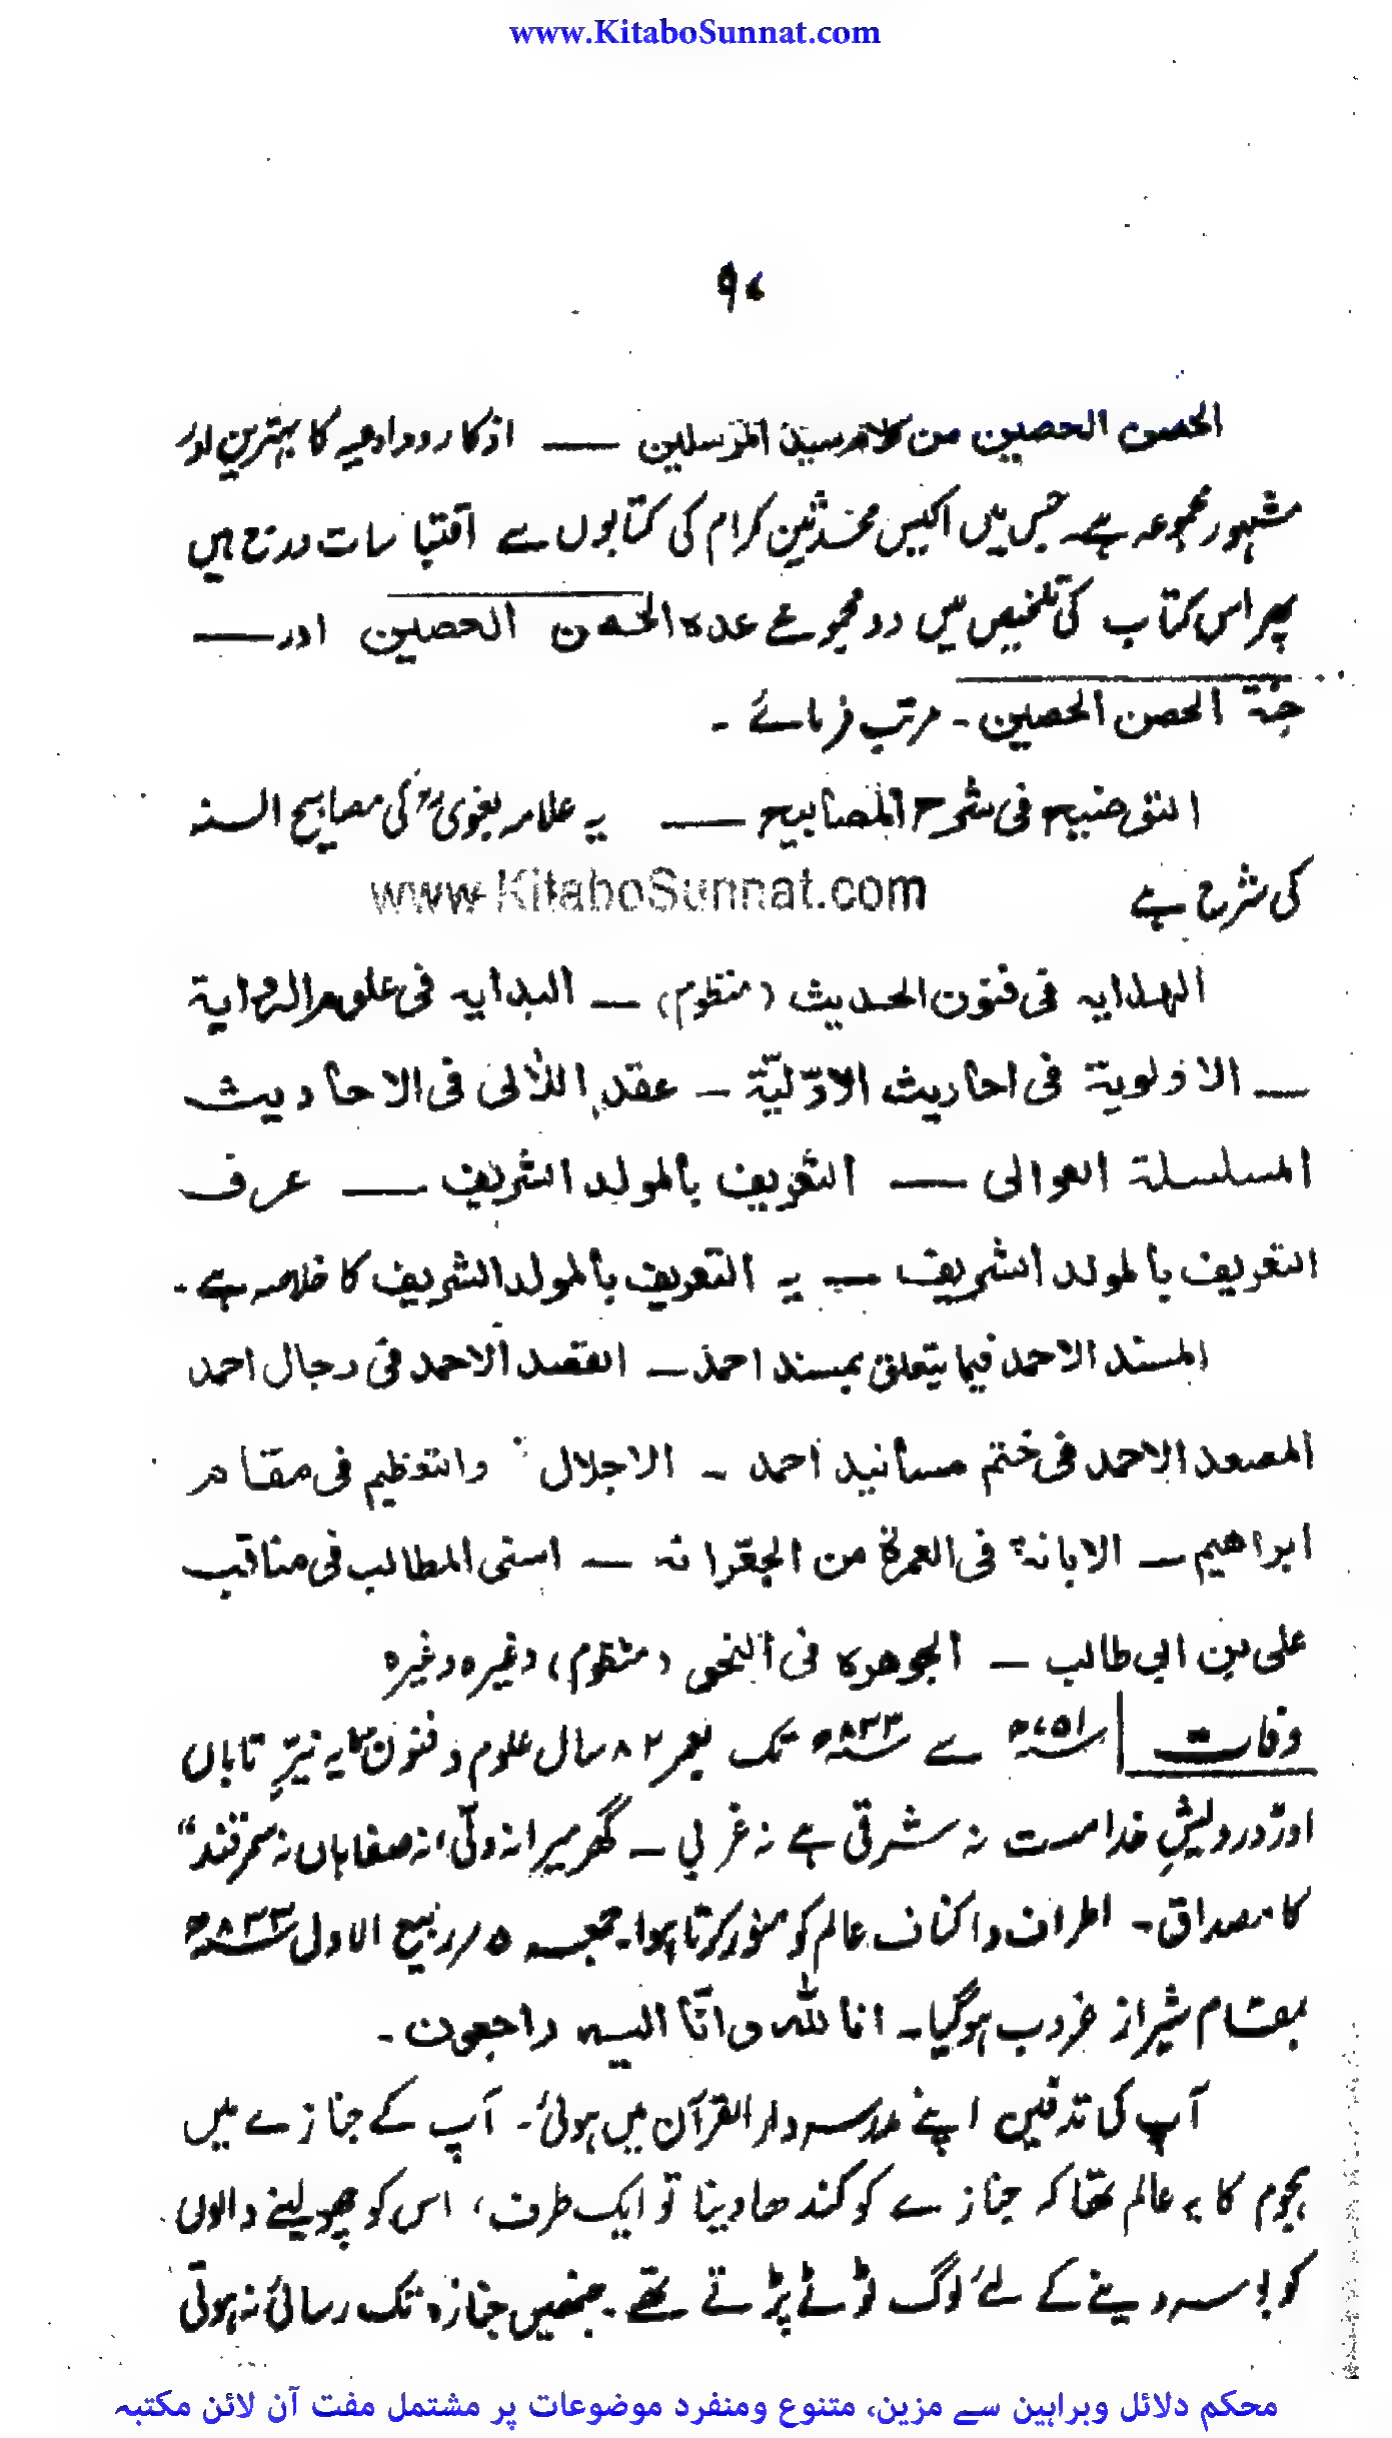 www.KitaboSunnat.com
الحصن الحصین من کلام سید المرسلین —— اذکار و ادعیہ کا بہترین اور
مشہور مجموعہ ہے۔ جس میں اکیس محدثین کرام کی کتابوں سے اقتباسات درج ہیں
پھر اس کتاب کی تلخیص میں دو مجموعے عدہ الحصن الحصین اور ——
جنۃ الحصن الحصین۔ مرتب فرمائے۔
التوضیح فی شرح المصابیح —— یہ علامہ بغوی کی مصابیح السنہ
کی شرح ہے
www.KitaboSunnat.com
الہدایہ فی فنون الحدیث (منظوم) — البدایہ فی علوم الروایۃ
— الاولویۃ فی احادیث الاوّلیّۃ — عقد اللآلی فی الاحادیث
المسلسلۃ العوالی —— التعریف بالمولد الشریف —— عرف
التعریف بالمولد الشریف — یہ التعریف بالمولد الشریف کا خلاصہ ہے۔
المسند الاحمد فیما یتعلق بمسند احمد — القصد الاحمد فی رجال احمد
المصعد الاحمد فی ختم مسانید احمد — الاجلال والتعظیم فی مقام
ابراھیم — الابانۃ فی العمرۃ من الجعّرانہ — اسنی المطالب فی مناقب
علی بن ابی طالب — الجوھرۃ فی النحو (منظوم) وغیرہ وغیرہ
وفات | ۷۵۱ھ سے ۸۳۳ھ تک بعمر ۸۲ سال علوم و فنون کا یہ نیّرِ تاباں
اور "درویشِ خدا مست نہ شرقی ہے نہ غربی — گھر میرا نہ دلّی، نہ صفاہاں نہ سمرقند"
کا مصداق۔ اطراف و اکناف عالم کو منور کرتا ہوا۔ جمعہ ۵ ربیع الاول ۸۳۳ھ
بمقام شیراز غروب ہوگیا۔ انا للہ و انّا الیہ راجعون۔
آپ کی تدفین اپنے مدرسہ دار القرآن میں ہوئی۔ آپ کے جنازے میں
ہجوم کا یہ عالم تھا کہ جنازے کو کندھا دینا تو ایک طرف، اس کو چھو لینے والوں
کو بوسہ دینے کے لئے لوگ ٹوٹے پڑتے تھے۔ جنھیں جنازہ تک رسائی نہ ہوتی
محکم دلائل وبراہین سے مزین، متنوع ومنفرد موضوعات پر مشتمل مفت آن لائن مکتبہ